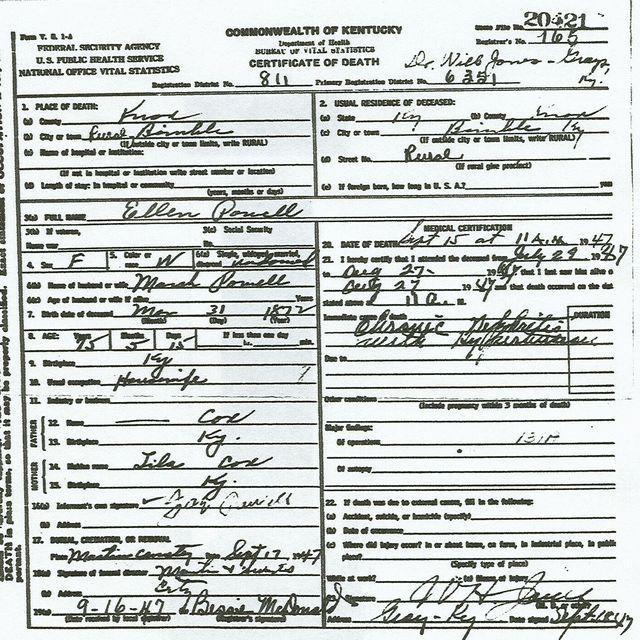 Form V. S. 1-A
FEDERAL SECURITY AGENCY
U. S. PUBLIC HEALTH SERVICE
NATIONAL OFFICE VITAL STATISTICS
COMMONWEALTH OF KENTUCKY
Department of Health
BUREAU OF VITAL STATISTICS
CERTIFICATE OF DEATH
State File No. 20421
Registrar's No. 165
Dr. Will Jones - Grays, Ky.
Registration District No. 811 Primary Registration District No. 6351
1. PLACE OF DEATH:
(a) County Knox
(b) City or town Rural Bimble
(If outside city or town limits, write RURAL)
(c) Name of hospital or institution:
(If not in hospital or institution write street number or location)
(d) Length of stay: In hospital or community
(years, months or days)
2. USUAL RESIDENCE OF DECEASED:
(a) State Ky (b) County Knox
(c) City or town Bimble Ky
(If outside city or town limits, write RURAL)
(d) Street No. Rural
(If rural give precinct)
(e) If foreign born, how long in U. S. A.?
3(a) FULL NAME Ellen Powell
3(b) If veteran,
Name war
3(c) Social Security
No.
4. Sex F 5. Color or race W 6(a) Single, widowed, married, divorced widowed
6(b) Name of husband or wife Powell
6(c) Age of husband or wife if alive Years
7. Birth date of deceased Mar 31 1872
(Month) (Day) (Year)
8. AGE: Years 75 Months 5 Days 15 If less than one day hr. min.
9. Birthplace Ky
10. Usual occupation Housewife
11. Industry or business
FATHER
12. Name Cox
13. Birthplace Ky.
MOTHER
14. Maiden name Cox
15. Birthplace Ky.
16(a) Informant's own signature
(b) Address
17. BURIAL, CREMATION, OR REMOVAL
Place Martin Cemetery Date Sept 17 1947
18(a) Signature of funeral director
(b) Address City
19(a) 9-16-47 (b) Bessie McDonald
(Date received by local registrar) (Registrar's signature)
MEDICAL CERTIFICATION
20. DATE OF DEATH Sept 15 at 11 A.M. 1947
21. I hereby certify that I attended the deceased from July 29 1947
to Aug 27 1947 that I last saw him alive o
Aug 27 1947 and that death occurred on the dat
stated above at 11 a. M.
Immediate cause of death
Chronic Nephritis
with Hypertension
DURATION
Due to
Other conditions
(Include pregnancy within 3 months of death)
Major findings:
Of operations 131A
Of autopsy
22. If death was due to external cause, fill in the following:
(a) Accident, suicide, or homicide (specify)
(b) Date of occurrence
(c) Where did injury occur? In or about home, on farm, in industrial place, in public
place?
(Specify type of place)
While at work? (e) Means of injury
23. Signature Jones
Address Gray - Ky Date signed Sept 18 47